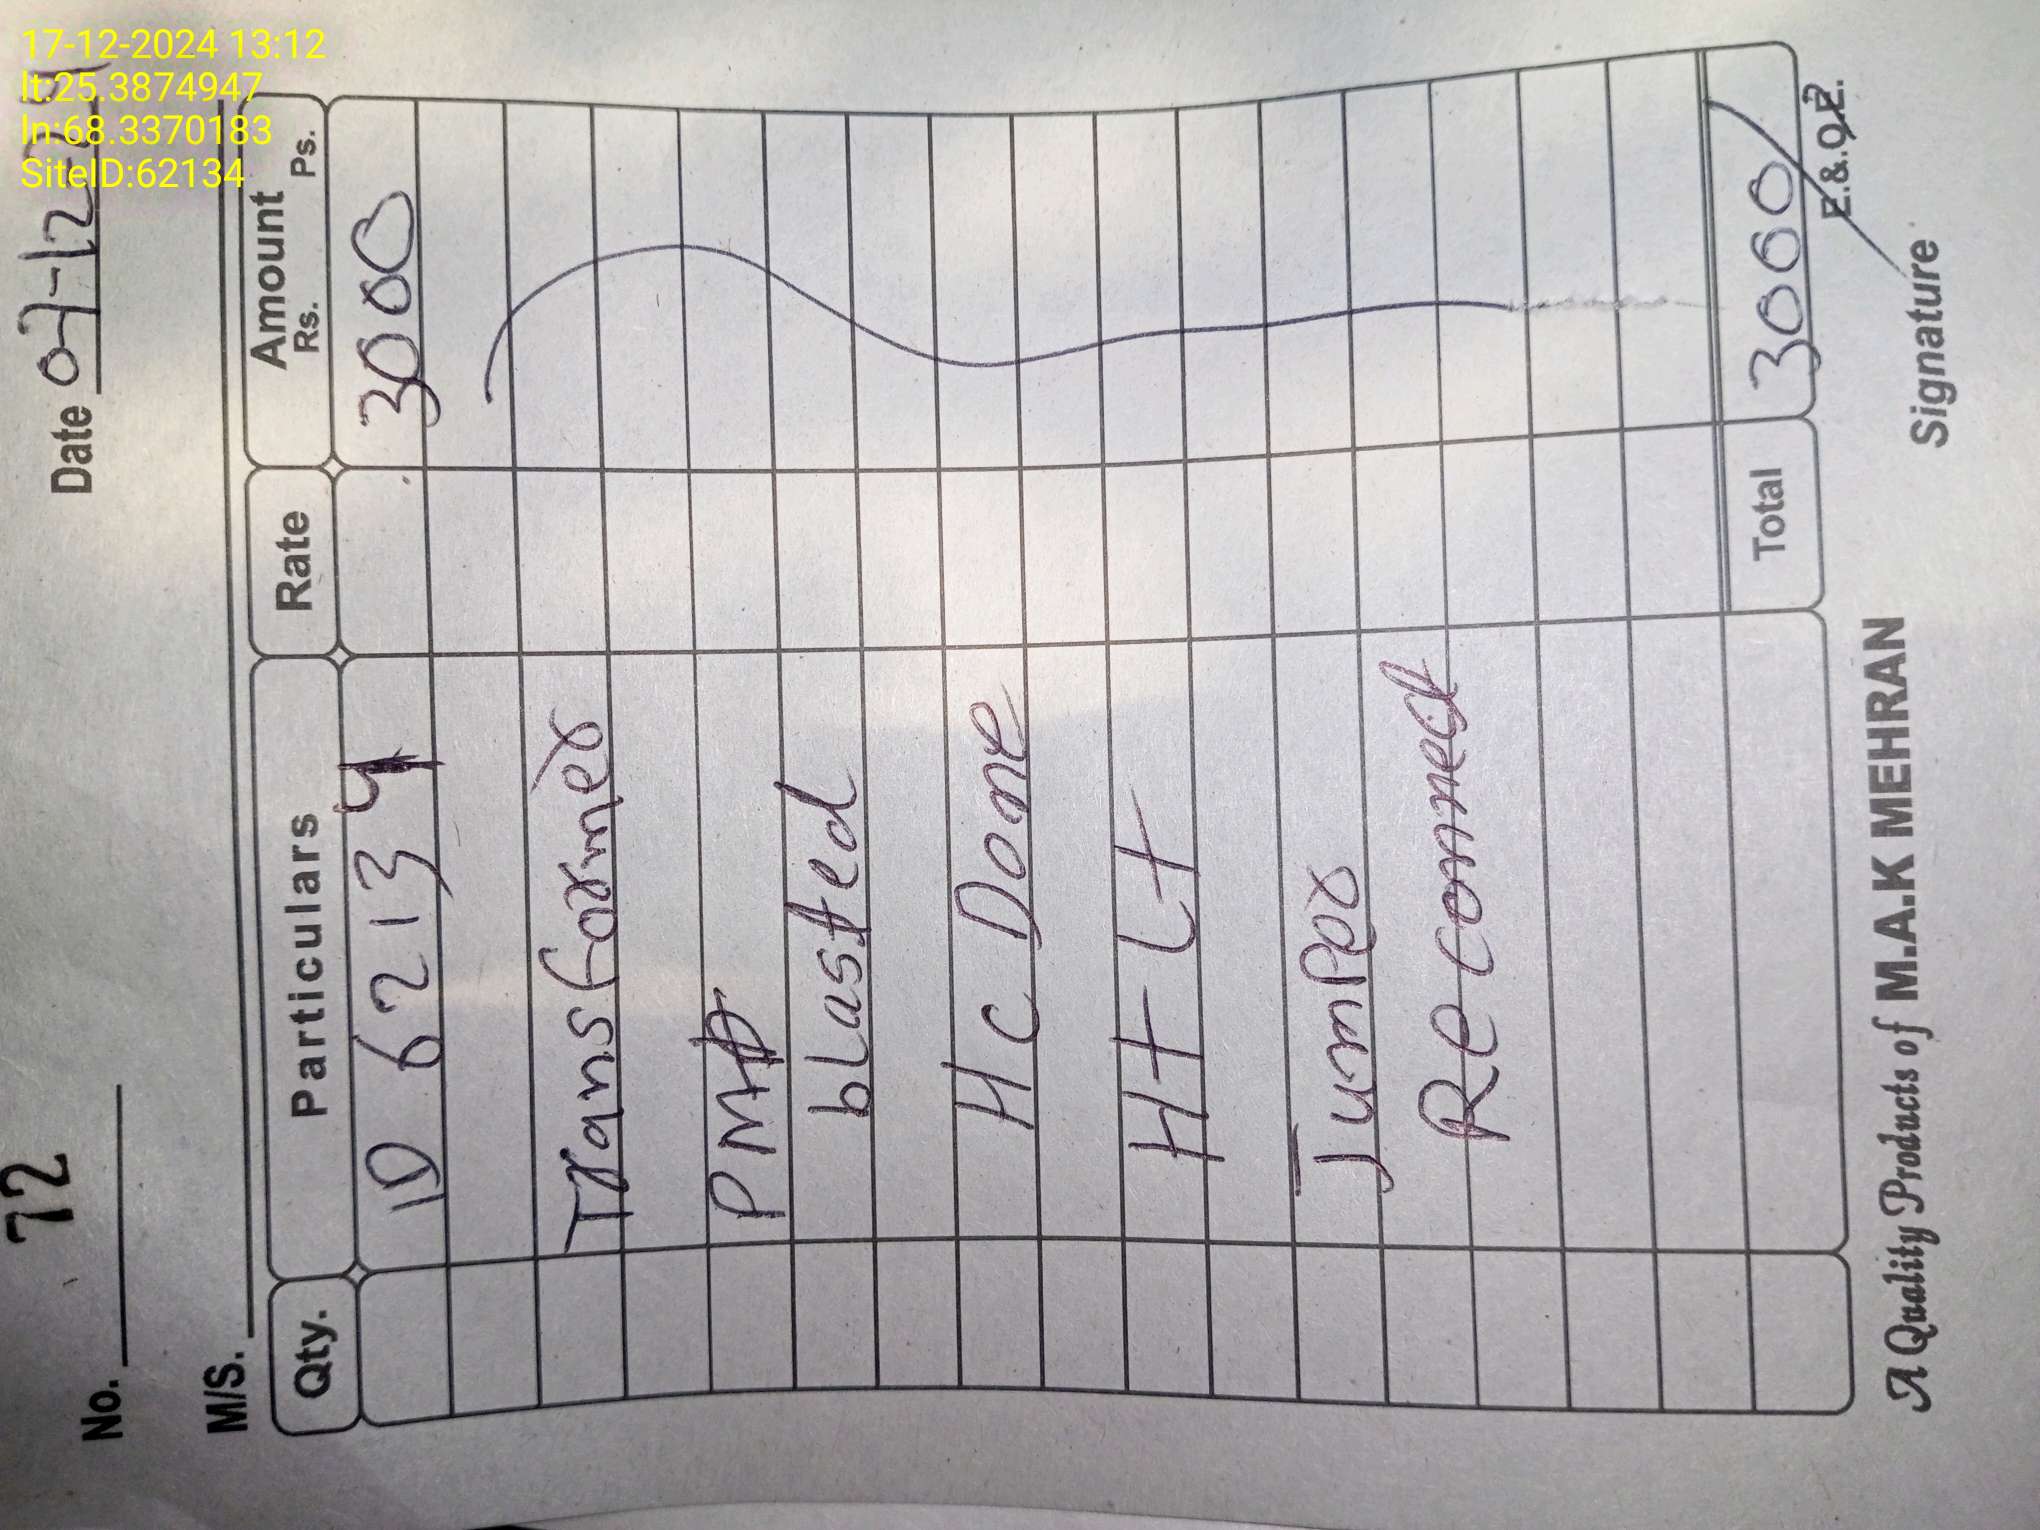 17-12-2024 13:12
lt:25.3874947
ln:68.3370183
SiteID:62134
No. 72
Date 07-12-24
M/S.
Qty. Particulars Rate Amount
Rs. Ps.
ID 62134 3000
Transformer
PMT
blasted
HC Done
HT LT
Jumper
Reconnect
Total 3000
E.&.O.E.
A Quality Products of M.A.K MEHRAN
Signature